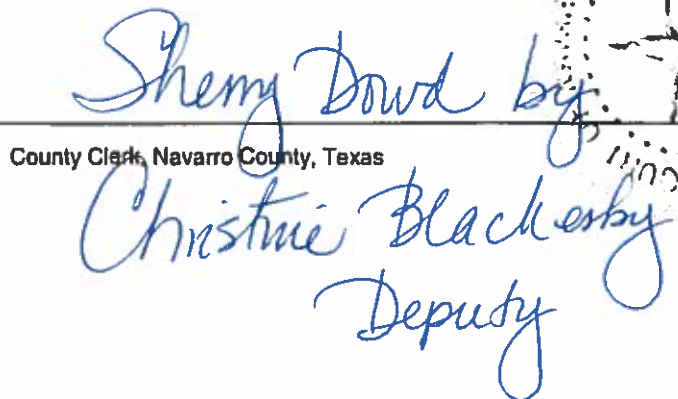 Sherry Dowd by
County Clerk, Navarro County, Texas
Christine Blackesby
Deputy